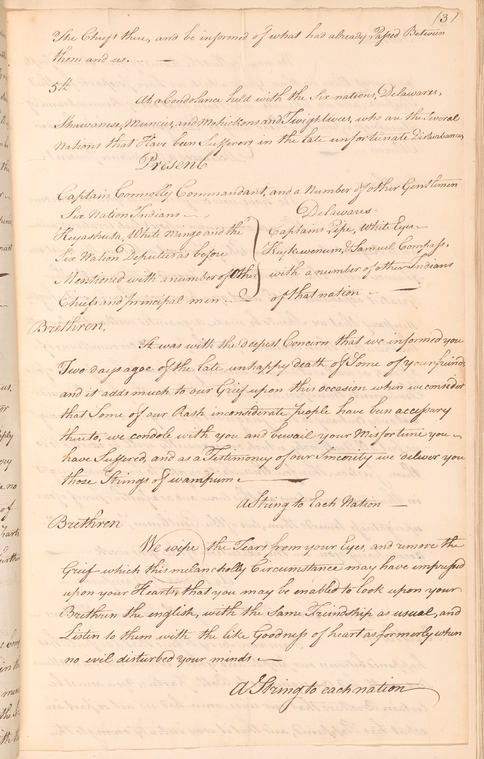 (3)
The Chiefs there, and be informed of what had already Passed Between
them and us.
5th
At a Condolance held with the Six nations, Delawares,
Shawanese, Muncies, and Mohickons and Twightwees, who are the Several
Nations that Have been Sufferers in the late unfortunate Disturbances
Present
Captain Connolly Commandant, and a Number of other Gentlemen
Six Nation Indians
Keyashuta, White Mingo and the
Six Nation Deputies as before
Mentioned with a number of Other
Chiefs and principal men
Delawares
Captains Pipe, White Eyes
Keykewenum, & Samuel Compass,
with a number of other Indians
of that nation
Brethren,
It was with the deepest Concern that we informed you
Two days agoe of the late unhappy death of Some of your friends
and it adds much to our Grief upon this occasion when we consider
that Some of our Rash inconsiderate people have been accessary
thereto, we condole with you and bewail your Misfortune you
have Suffered, and as a Testimony of our Sincerity we deliver you
those Strings of wampum
A String to Each Nation
Brethren
We wipe the Tears from your Eyes, and remove the
Grief which this melancholly Circumstance may have impressed
upon your Hearts, that you may be enabled to look upon your
Brethren the english, with the Same Friendship as usual, and
Listen to them with the like Goodness of heart as formerly when
no evil disturbed your minds
A String to each nation